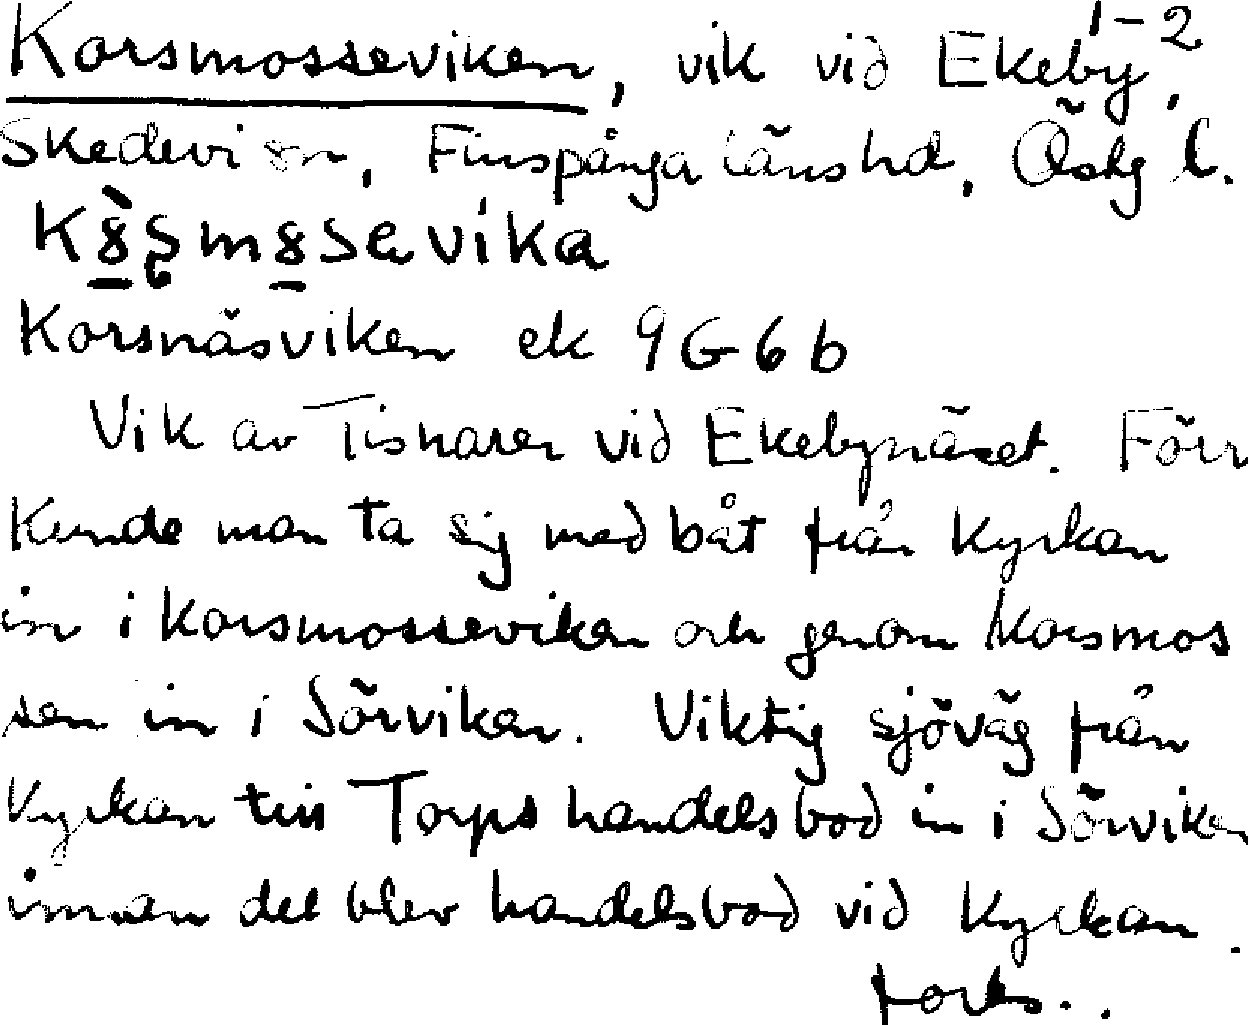 Korsmosseviken, vik vid Ekeby 1-2,
Skedevi sn, Finspånga länshd, Östg l.
K8̀s̨m8sevika
Korsnäsviken ek 9G6b
Vik av Tisnaren vid Ekebynäset. Förr
kunde man ta sig med båt från kyrkan
in i Korsmosseviken och genom Korsmos
sen in i Sörviken. Viktig sjöväg från
kyrkan till Torps handelsbod in i Sörviken
innan det blev handelsbod vid kyrkan.
forts..